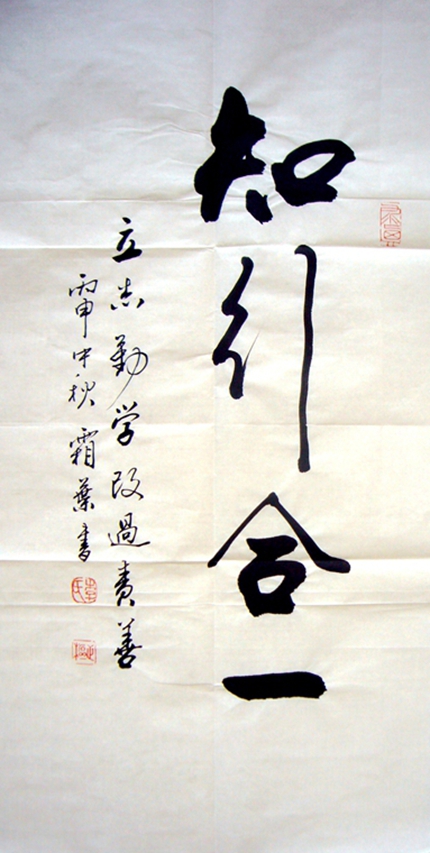 知行合一
立志勤学改過责善
丙申中秋霜葉书